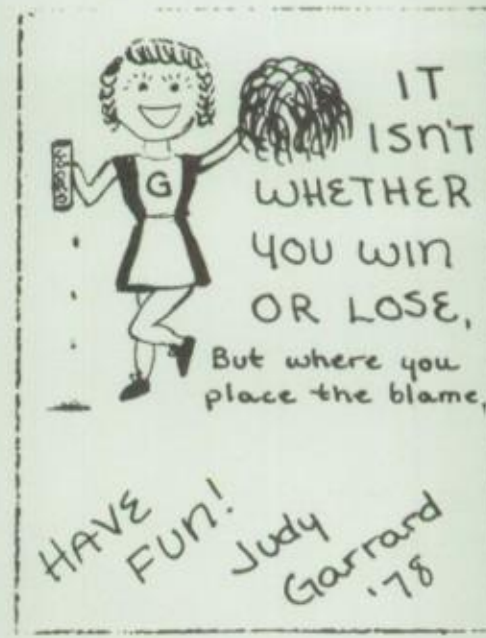 G
IT
ISN'T
WHETHER
YOU WIN
OR LOSE,
But where you
place the blame,
HAVE
FUN!
Judy
Garrard
'78